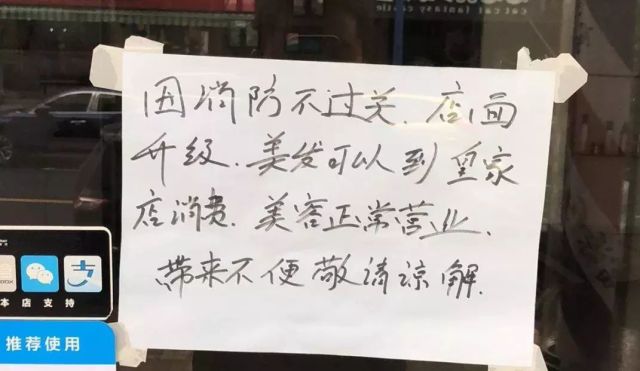 因消防不过关.店面
升级.美发可以到皇家
店消费.美容正常营业.
带来不便敬请谅解.
本店支持
推荐使用